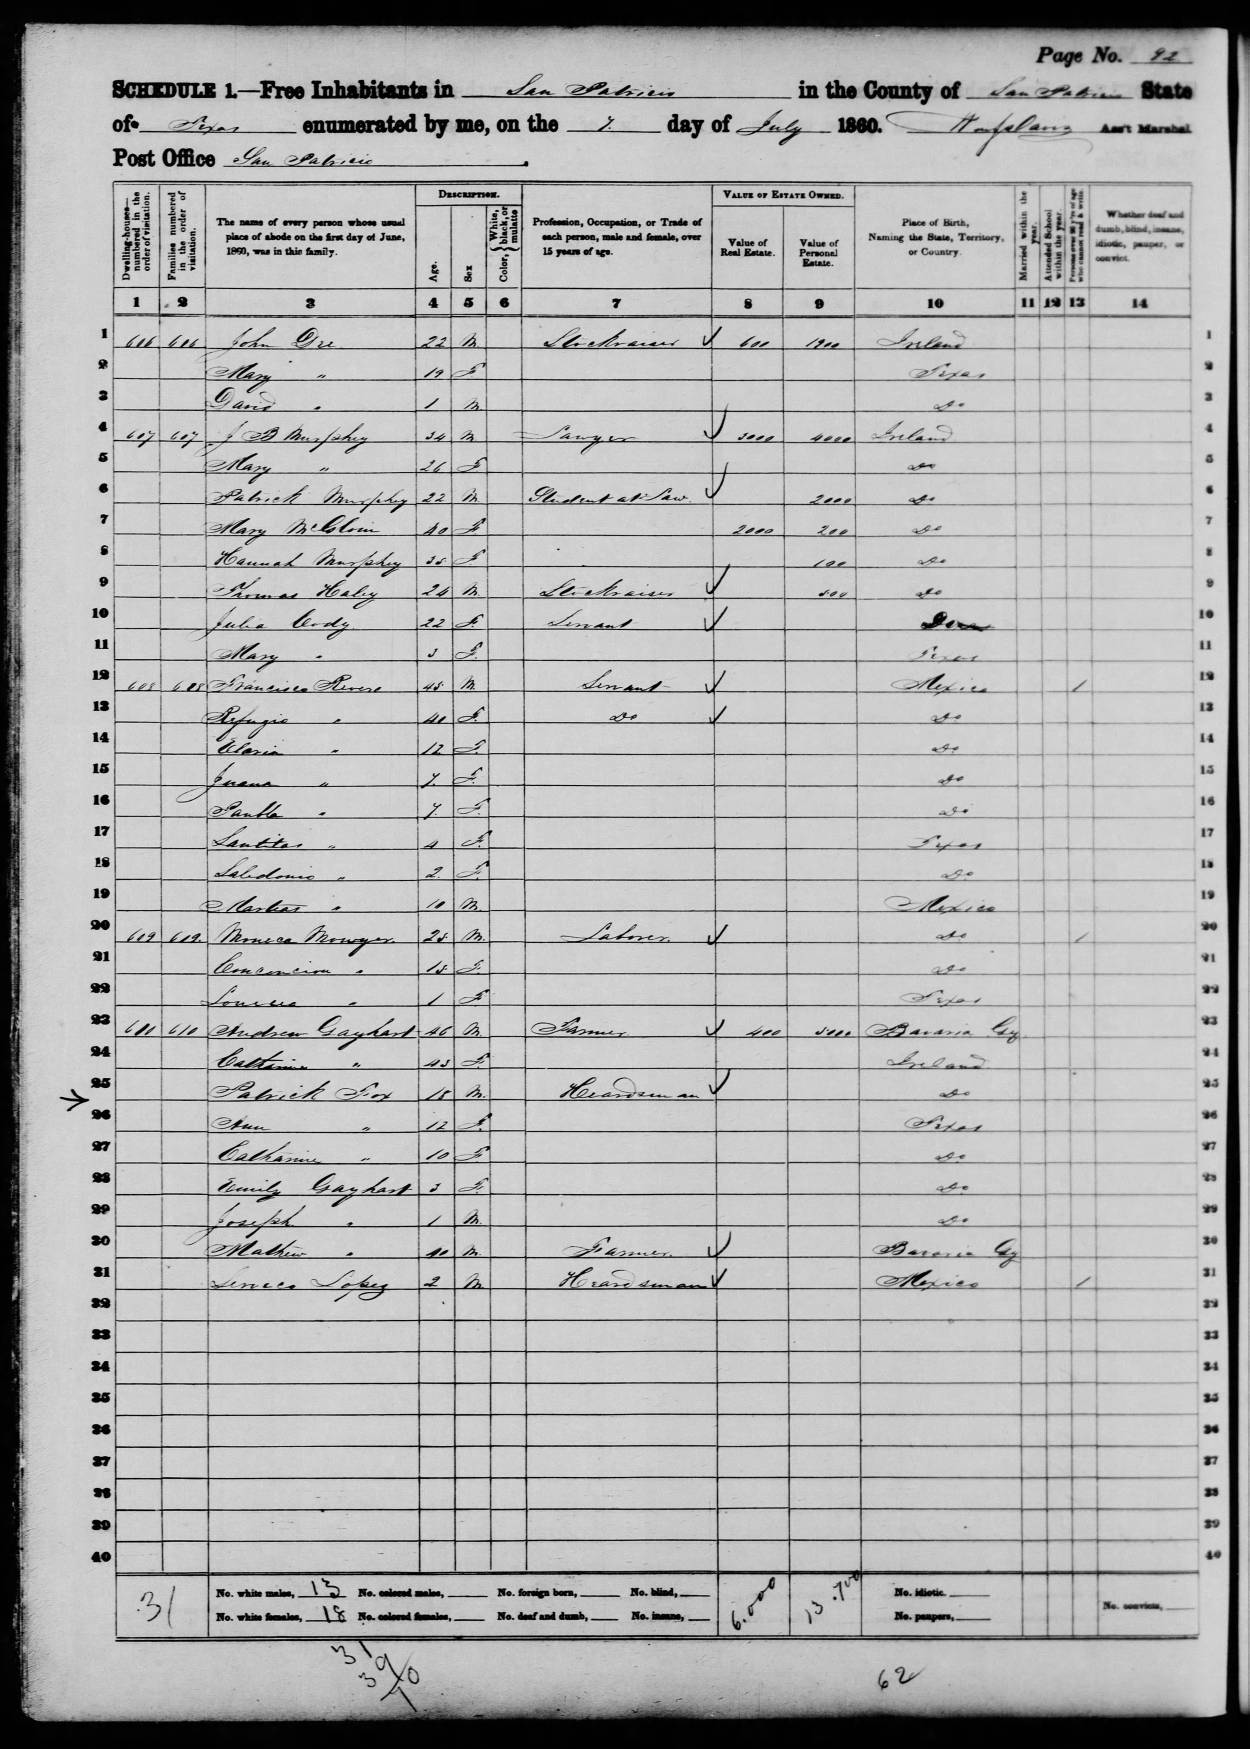 Page No. 92
SCHEDULE 1.—Free Inhabitants in San Patricio in the County of San Patricio State
of Texas enumerated by me, on the 7. day of July 1860. Ass't Marshal
Post Office San Patricio.
Dwelling-houses—numbered in the order of visitation.
Families numbered in the order of visitation.
The name of every person whose usual place of abode on the first day of June, 1860, was in this family.
DESCRIPTION.
Age.
Sex
Color, { White, black, or mulatto
Profession, Occupation, or Trade of each person, male and female, over 15 years of age.
VALUE OF ESTATE OWNED.
Value of Real Estate.
Value of Personal Estate.
Place of Birth, Naming the State, Territory, or Country.
Married within the year.
Attended School within the year.
Persons over 20 y'rs of age who cannot read & write.
Whether deaf and dumb, blind, insane, idiotic, pauper, or convict.
1 2 3 4 5 6 7 8 9 10 11 12 13 14
1 606 606 John Dee 22 M. Stockraiser ✓ 600 1900 Ireland 1
2 Mary " 19 F Texas 2
3 David " 1 M. Do 3
4 607 607 J B Murphey 34 M. Lawyer ✓ 3000 4000 Ireland 4
5 Mary " 26 F Do 5
6 Patrick Murphey 22 M. Student at Law ✓ 2000 Do 6
7 Mary McGloin 40 F 2000 200 Do 7
8 Hannah Murphey 35 F. 100 Do 8
9 Thomas Haley 24 M. Stockraiser ✓ 500 Do 9
10 Julia Cody 22 F. Servant ✓ 10
11 Mary " 3 F. Texas 11
12 608 608 Francisco Rivero 45 M. Servant ✓ Mexico 1 12
13 Refugio " 40 F. Do ✓ Do 13
14 " 12 F. Do 14
15 Juana " 7. F. Do 15
16 Paubla " 7. F. Do 16
17 Santitos " 4 F. Texas 17
18 " 2. F. Do 18
19 " 10 M. Mexico 19
20 609 609. 25 M. Laborer. ✓ Do 1 20
21 " 15 F. Do 21
22 " 1 F Texas 22
23 610 Andrew Gayhart 46 M. Farmer ✓ 400 5000 Bavaria Gy 23
24 Catharine " 43 F. Ireland 24
25 Patrick Fox 18 M. Heardsman ✓ Do 25
26 Ann " 12 F. Texas 26
27 Catharine " 10 F Do 27
28 Emily Gayhart 3 F. Do 28
29 Joseph " 1 M. Do 29
30 Mathew " 40 M. Farmer. ✓ Bavaria Gy 30
31 Lopez 2 M Heardsman ✓ Mexico 1 31
32 32
33 33
34 34
35 35
36 36
37 37
38 38
39 39
40 40
31 No. white males, 13 No. colored males, No. foreign born, No. blind, 6.000 13.700 No. idiotic.
No. white females, 18 No. colored females, No. deaf and dumb, No. insane, No. paupers, No. convicts,
31
39
70
62